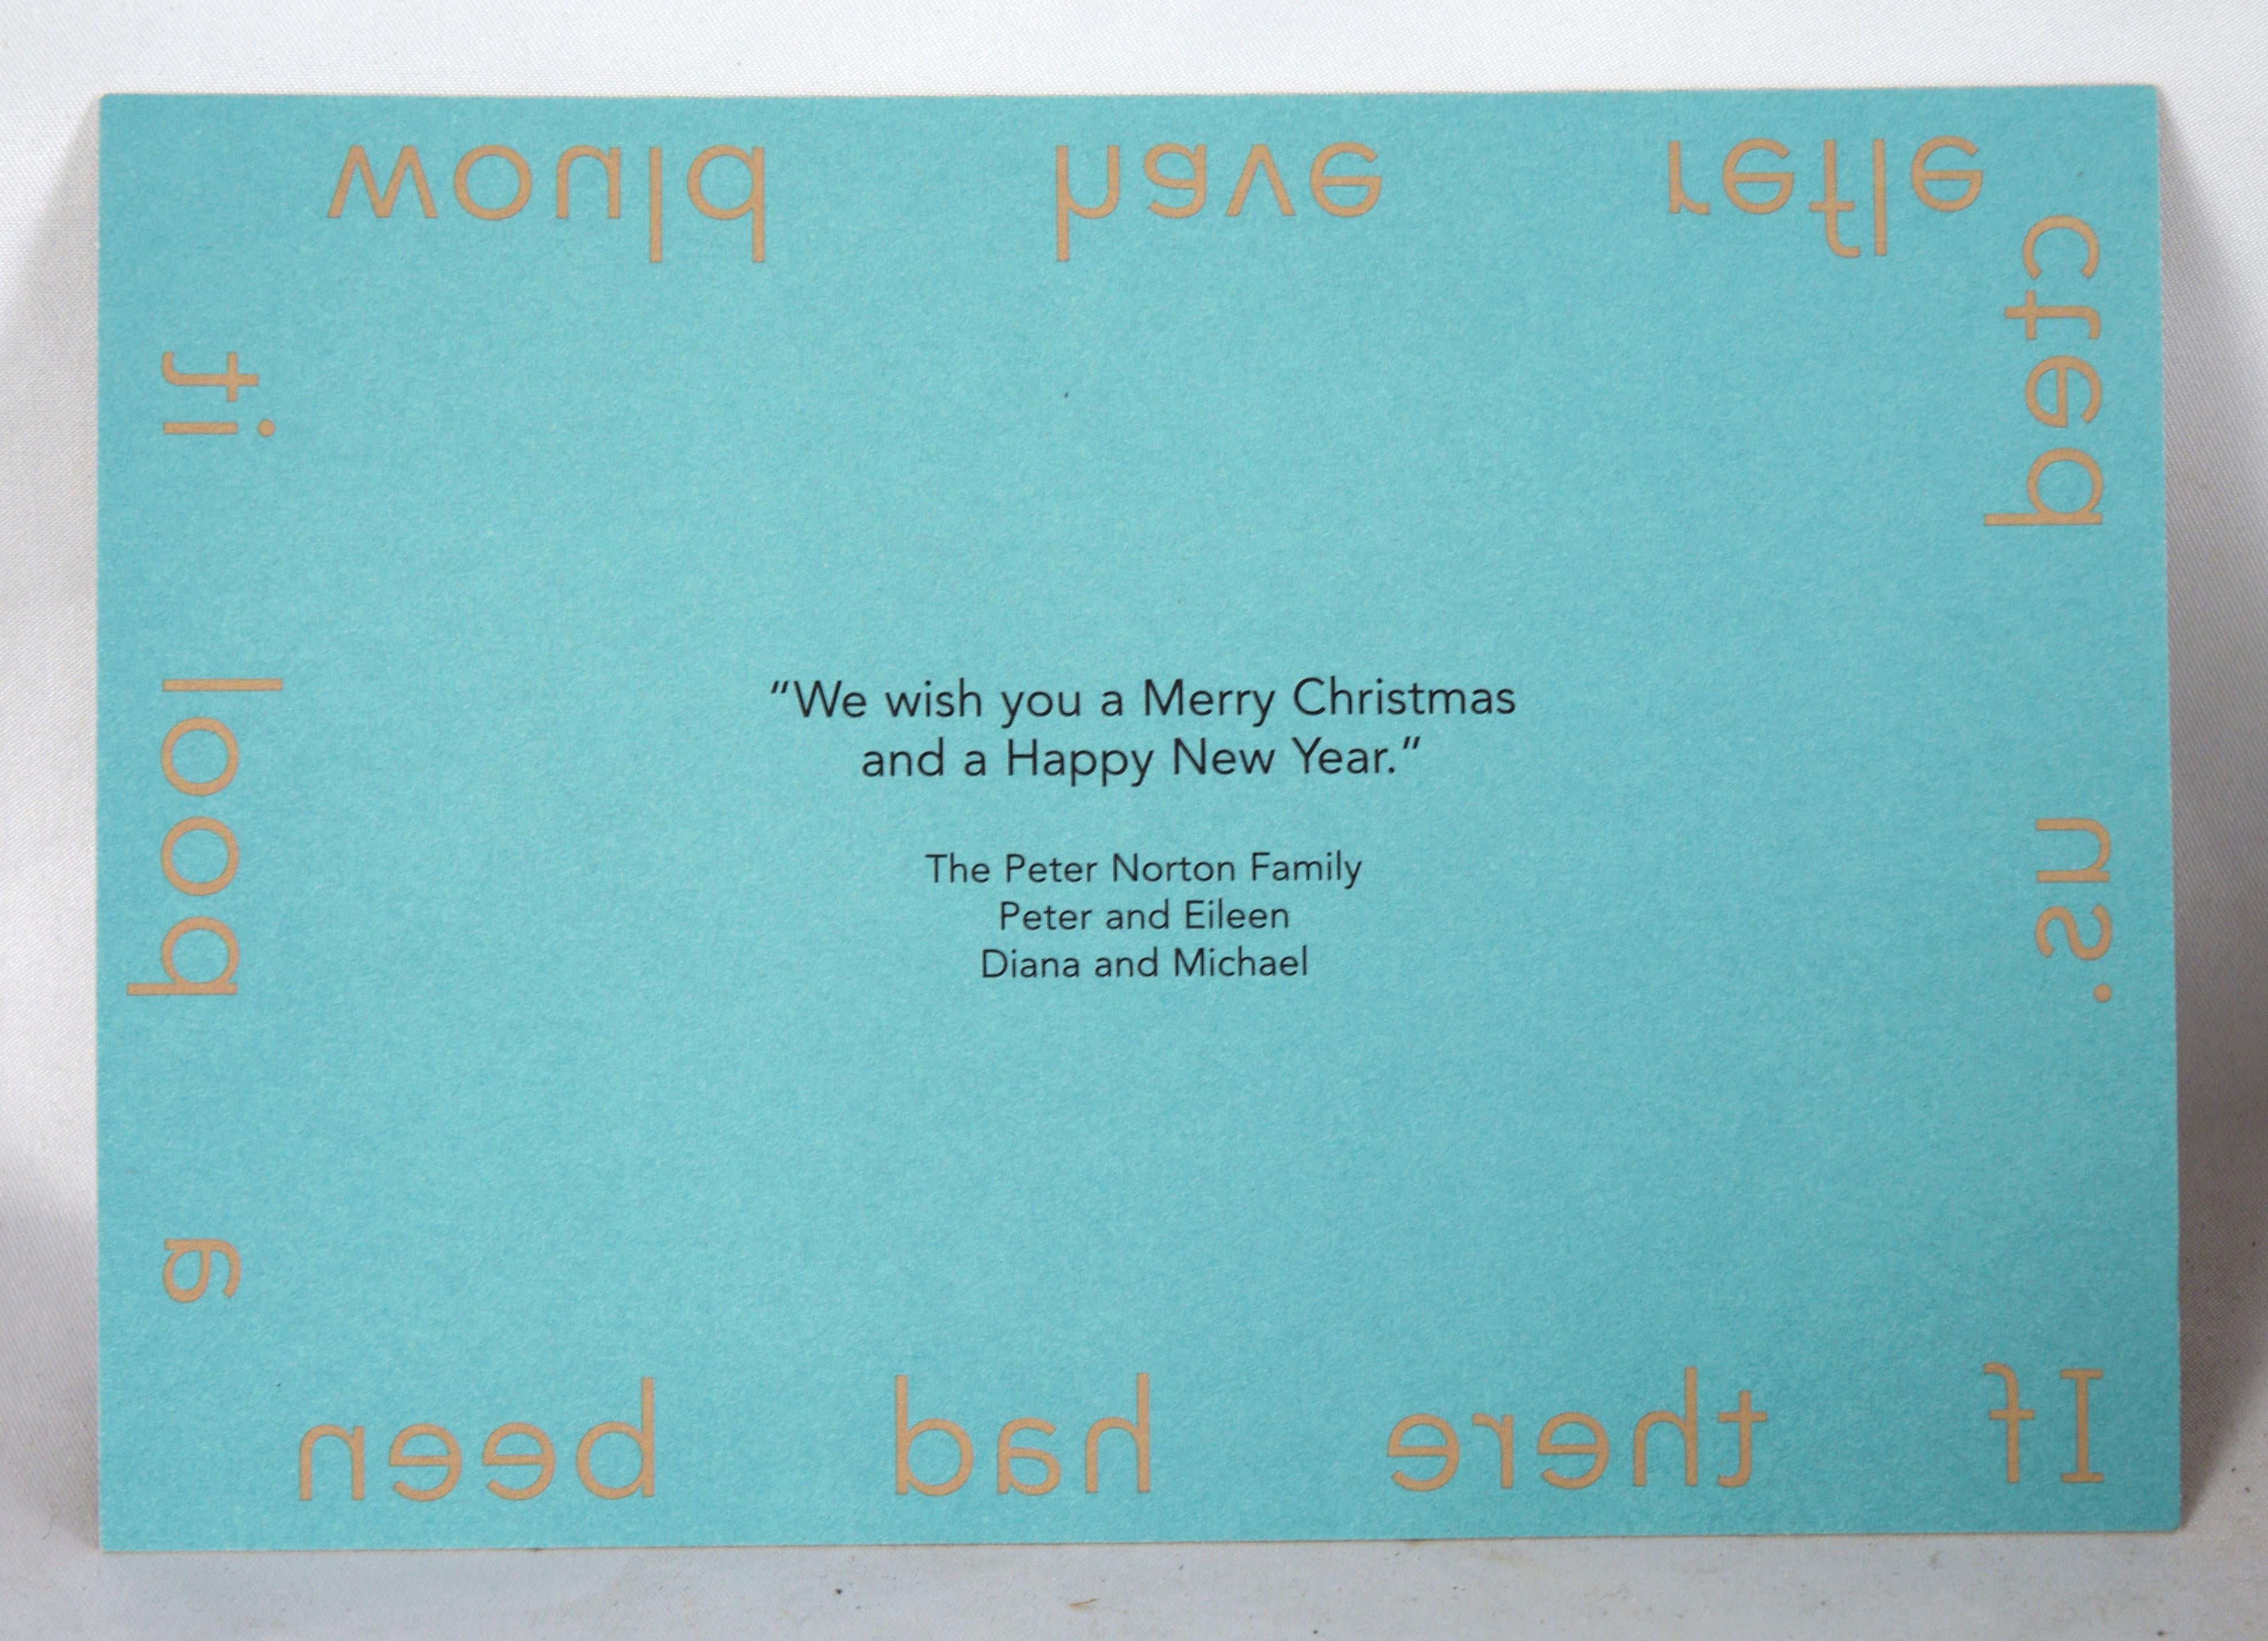 If there had been
a pool it
would have refle
cted us.
“We wish you a Merry Christmas
and a Happy New Year.”
The Peter Norton Family
Peter and Eileen
Diana and Michael